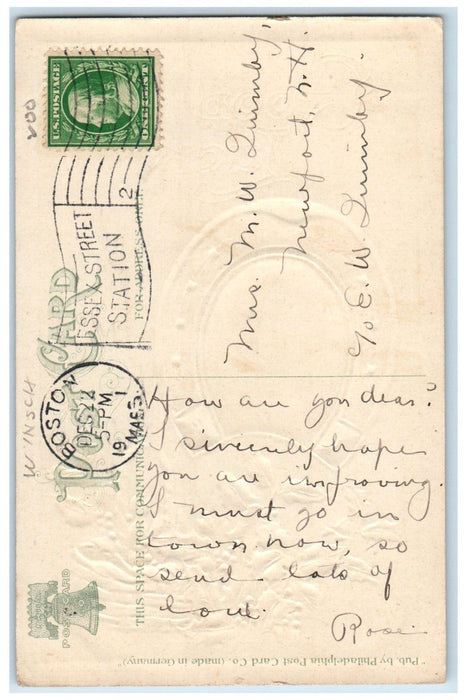 200
U.S. POSTAGE
ONE CENT
ESSEX STREET
STATION
2
BOSTON
DEC 22
5-PM
19
MASS.
1
POST CARD
FOR ADDRESS ONLY
THIS SPACE FOR COMMUNICATION
WINSCH
Mrs. M. W. Quimby,
Newport, N.H.
c/o E. W. Quimby
How are you dear?
I sincerely hope
you are improving.
I must go in
town now, so
send lots of
love.
Rose
POST CARD
"Pub. by Philadelphia Post Card Co. (made in Germany)"